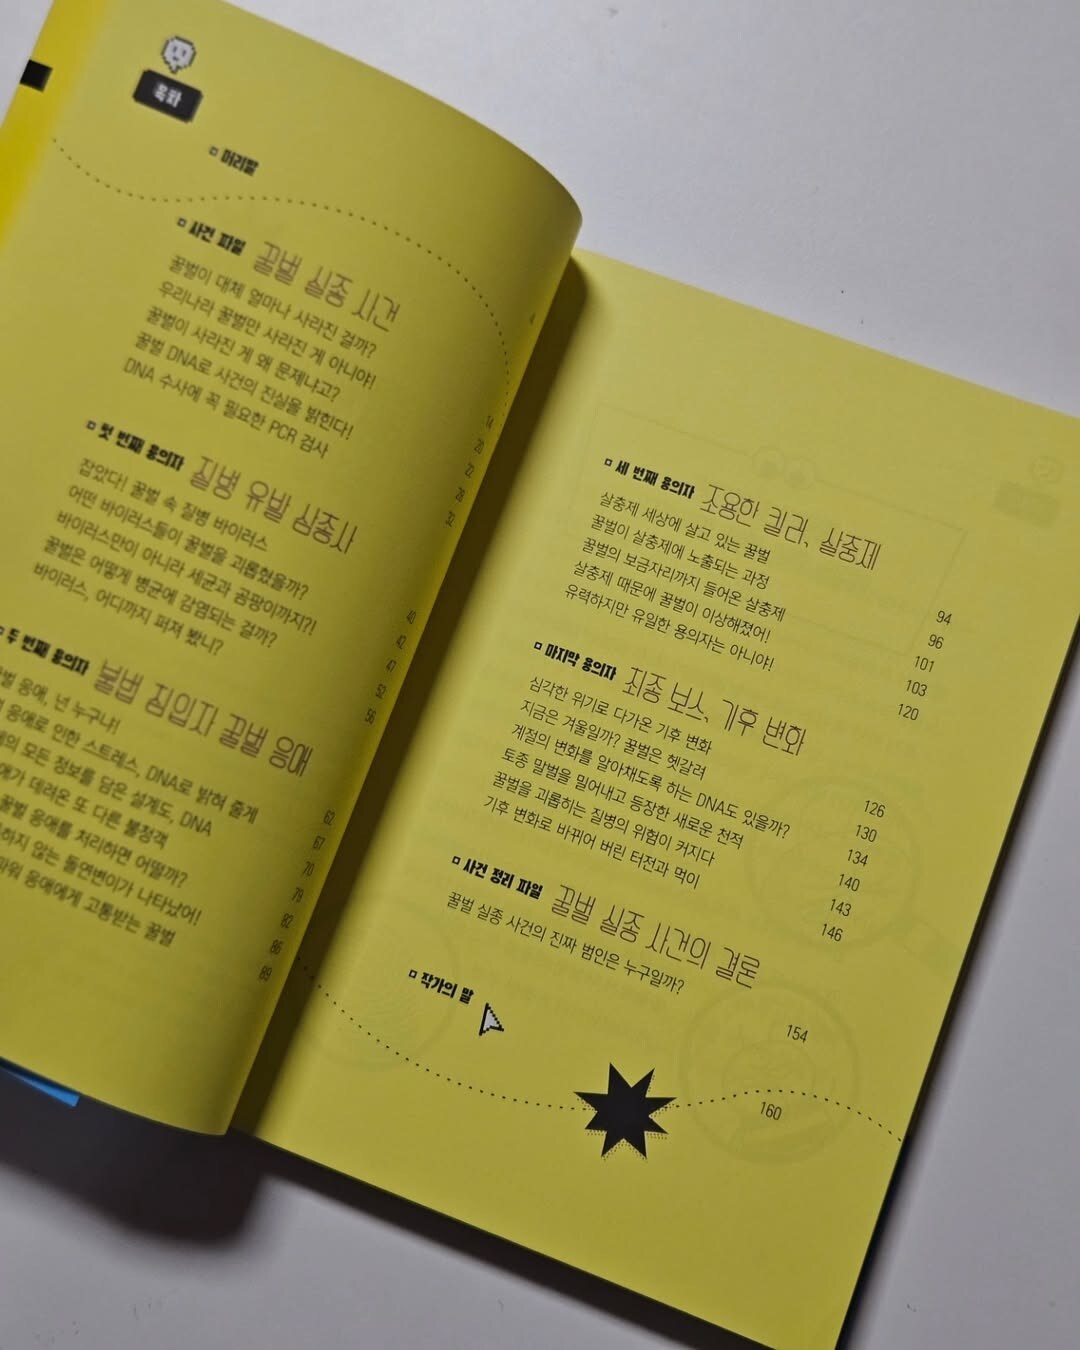 목차
머리말
4
사건 파일 꿀벌 실종 사건
꿀벌이 대체 얼마나 사라진 걸까? 14
우리나라 꿀벌만 사라진 게 아니야! 20
꿀벌이 사라진 게 왜 문제냐고? 22
꿀벌 DNA로 사건의 진실을 밝힌다! 28
DNA 수사에 꼭 필요한 PCR 검사 32
첫 번째 용의자 질병 유발 심종사
잡았다! 꿀벌 속 질병 바이러스 40
어떤 바이러스들이 꿀벌을 괴롭혔을까? 42
바이러스만이 아니라 세균과 곰팡이까지?! 47
꿀벌은 어떻게 병균에 감염되는 걸까? 52
바이러스, 어디까지 퍼져 봤니? 56
두 번째 용의자 불법 침입자 꿀벌 응애
응애, 넌 누구냐! 62
응애로 인한 스트레스, DNA로 밝혀 줄게 67
모든 정보를 담은 설계도, DNA 70
데려온 또 다른 불청객 79
꿀벌 응애를 처리하면 어떨까? 82
않는 돌연변이가 나타났어! 86
응애에게 고통받는 꿀벌 89
세 번째 용의자 조용한 킬러, 살충제
살충제 세상에 살고 있는 꿀벌 94
꿀벌이 살충제에 노출되는 과정 96
꿀벌의 보금자리까지 들어온 살충제 101
살충제 때문에 꿀벌이 이상해졌어! 103
유력하지만 유일한 용의자는 아니야! 120
마지막 용의자 최종 보스, 기후 변화
심각한 위기로 다가온 기후 변화 126
지금은 겨울일까? 꿀벌은 헷갈려 130
계절의 변화를 알아채도록 하는 DNA도 있을까? 134
토종 말벌을 밀어내고 등장한 새로운 천적 140
꿀벌을 괴롭히는 질병의 위험이 커지다 143
기후 변화로 바뀌어 버린 터전과 먹이 146
사건 정리 파일 꿀벌 실종 사건의 결론
꿀벌 실종 사건의 진짜 범인은 누구일까? 154
작가의 말 160